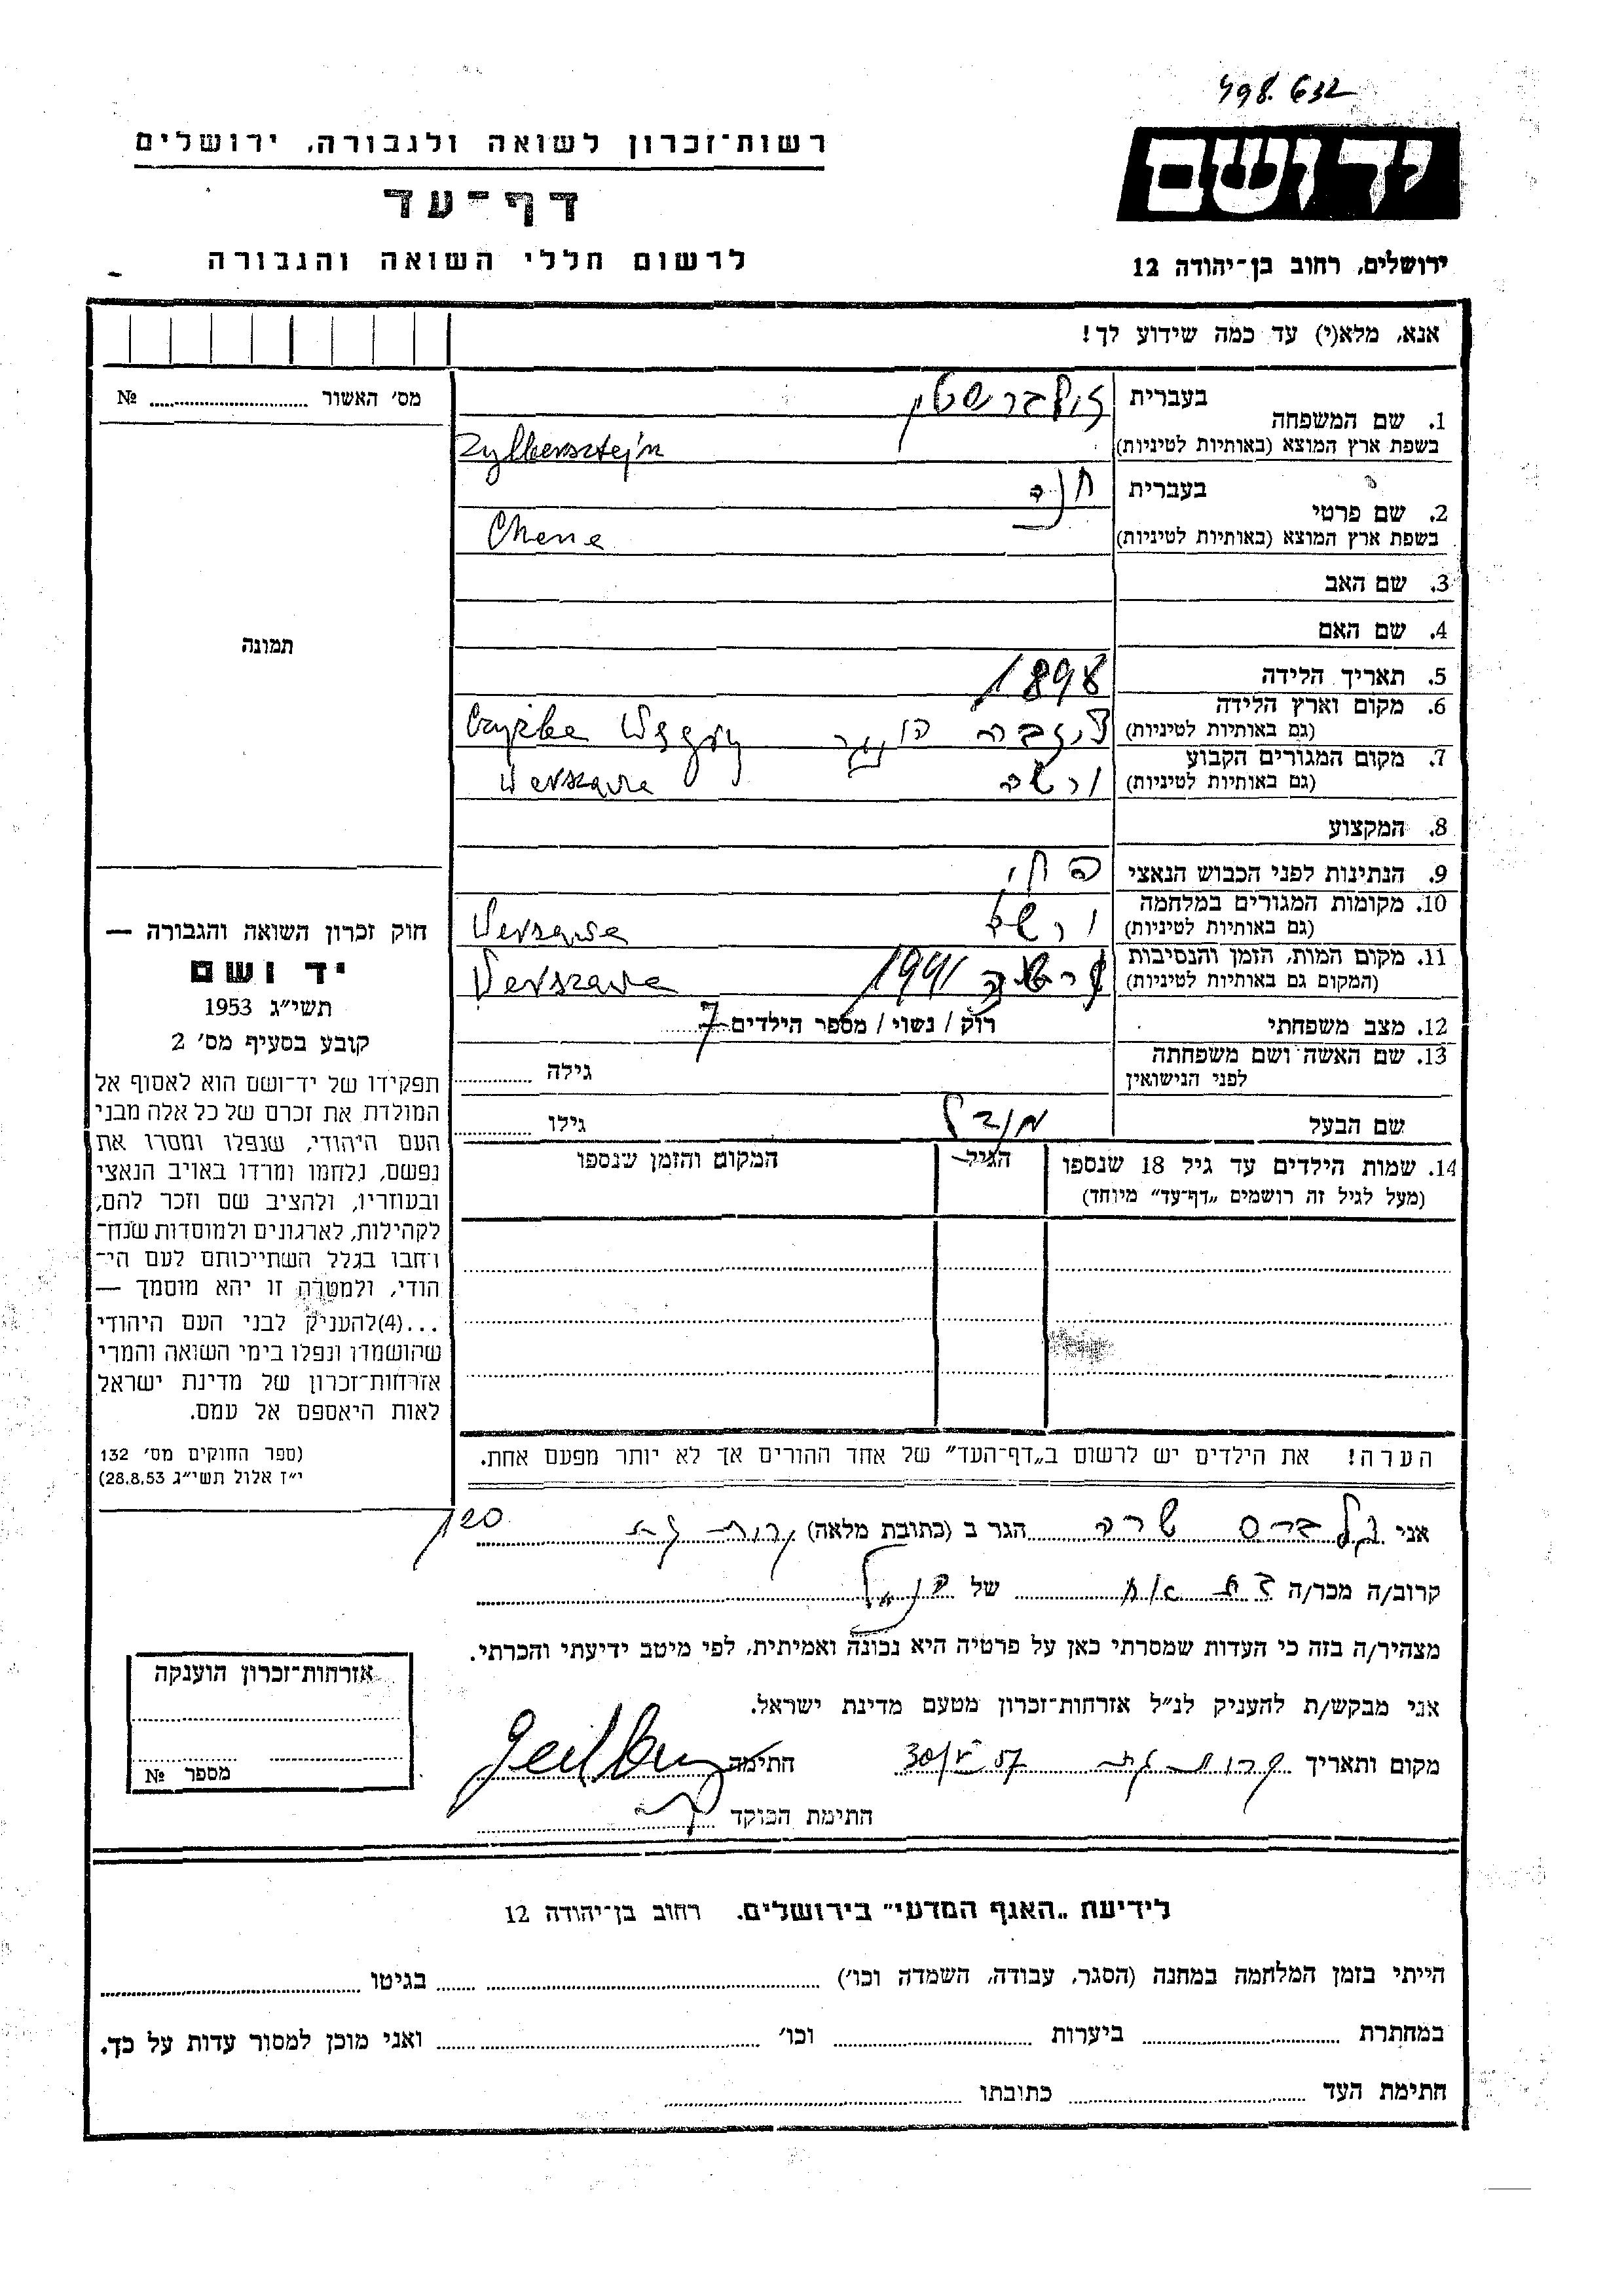 498.632
ידושם
רשות־זכרון לשואה ולגבורה, ירושלים
דף־עד
לרשום חללי השואה והגבורה
ירושלים, רחוב בן־יהודה 12
אנא, מלא(י) עד כמה שידוע לך!
מס׳ האשור № ........
1. שם המשפחה
בעברית זילברשטין
בשפת ארץ המוצא (באותיות לטיניות) Zylbersztejn
2. שם פרטי
בעברית חנה
בשפת ארץ המוצא (באותיות לטיניות) Chene
3. שם האב
4. שם האם
תמונה
5. תאריך הלידה 1898
6. מקום וארץ הלידה
(גם באותיות לטיניות)
7. מקום המגורים הקבוע
(גם באותיות לטיניות) ורשה Verszawa
8. המקצוע
9. הנתינות לפני הכבוש הנאצי
10. מקומות המגורים במלחמה
(גם באותיות לטיניות) ורשה
11. מקום המות, הזמן והנסיבות
(המקום גם באותיות לטיניות) ורשה 1941 Verszawa
12. מצב משפחתי רוק / נשוי / מספר הילדים 7
13. שם האשה ושם משפחתה
לפני הנישואין גילה ........
שם הבעל גילו ........
14. שמות הילדים עד גיל 18 שנספו הגיל המקום והזמן שנספו
(מעל לגיל זה רושמים „דף־עד” מיוחד)
חוק זכרון השואה והגבורה —
יד ושם
תשי״ג 1953
קובע בסעיף מס׳ 2
תפקידו של יד־ושם הוא לאסוף אל
המולדת את זכרם של כל אלה מבני
העם היהודי, שנפלו ומסרו את
נפשם, נלחמו ומרדו באויב הנאצי
ובעוזריו, ולהציב שם וזכר להם,
לקהילות, לארגונים ולמוסדות שנח־
רחבו בגלל השתייכותם לעם הי־
הודי, ולמטרה זו יהא מוסמך —
...(4)להעניק לבני העם היהודי
שהושמדו ונפלו בימי השואה והמרי
אזרחות־זכרון של מדינת ישראל
לאות היאספם אל עמם.
(ספר החוקים מס׳ 132
י״ז אלול תשי״ג 28.8.53)
הערה! את הילדים יש לרשום ב„דף־העד” של אחד ההורים אך לא יותר מפעם אחת.
אני שרה הגר ב (כתובת מלאה) קרית גת 120
קרוב/ה מכר/ה בת אח של
מצהיר/ה בזה כי העדות שמסרתי כאן על פרטיה היא נכונה ואמיתית, לפי מיטב ידיעתי והכרתי.
אני מבקש/ת להעניק לנ״ל אזרחות־זכרון מטעם מדינת ישראל.
מקום ותאריך קרית גת 30/ 57 חתימה
חתימת הפוקד
אזרחות־זכרון הוענקה
מספר №
לידיעת „האגף המדעי” בירושלים. רחוב בן־יהודה 12
הייתי בזמן המלחמה במחנה (הסגר, עבודה, השמדה וכו׳) ........ בגיטו ........
במחתרת ........ ביערות ........ וכו׳ ........ ואני מוכן למסור עדות על כך.
חתימת העד ........ כתובתו ........